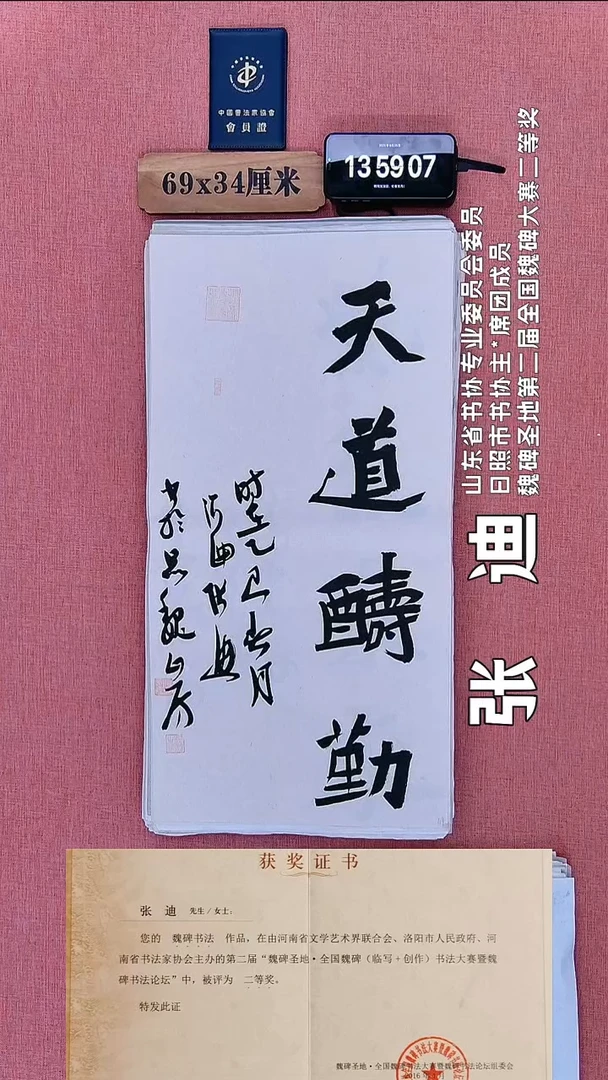 中國書法家協會
會員證
69x34厘米
13 59 07
山东省书协专业委员会委员
日照市书协主*席团成员
魏碑圣地第二届全国魏碑大赛二等奖
张 迪
天道醻勤
时在乙巳春月
获奖证书
张 迪 先生/女士:
您的 魏碑书法 作品,在由河南省文学艺术界联合会、洛阳市人民政府、河
南省书法家协会主办的第二届“魏碑圣地·全国魏碑(临写+创作)书法大赛暨魏
碑书法论坛”中,被评为 二等奖。
特发此证
魏碑圣地·全国魏碑书法大赛暨魏碑书法论坛组委会